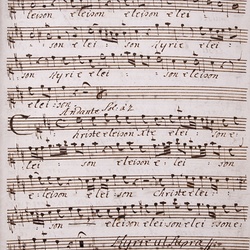 eleison eleison elei
son elei son Kyrie elei
son Kyrie elei son
eleison
Andante Solo a 2
Christe eleison Xte elei sone
lei son eleison e lei
son elei son Christe elei
son elei son eleison eleison e
lei son Kyrie ut supra